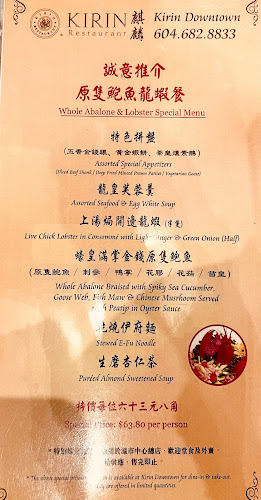 KIRIN
Restaurant
麒麟
Kirin Downtown
604.682.8833
誠意推介
原隻鮑魚龍蝦餐
Whole Abalone & Lobster Special Menu
特色拼盤
(五香金錢𦟌、黃金蝦餅、茶皇漢素鵝)
Assorted Special Appetizers
(Sliced Beef Shank / Deep Fried Minced Prawn Pattie / Vegetarian Goose)
龍皇芙蓉羹
Assorted Seafood & Egg White Soup
上湯焗開邊龍蝦 (半隻)
Live Chick Lobster in Consommé with Light Ginger & Green Onion (Half)
蠔皇滿掌金錢原隻鮑魚
(原隻鮑魚 / 刺參 / 鴨掌 / 花膠 / 花菇 / 苗皇)
Whole Abalone Braised with Spiky Sea Cucumber,
Goose Web, Fish Maw & Chinese Mushroom Served
Peatip in Oyster Sauce
燒伊府麵
Stewed E-Fu Noodle
生磨杏仁茶
Puréed Almond Sweetened Soup
特價每位六十三元八角
Special Price: $63.80 per person
於溫市中心總店,歡迎堂食及外賣,
供應,售完即止。
available at Kirin Downtown for dine-in & take-out.
are offered in limited quantities.